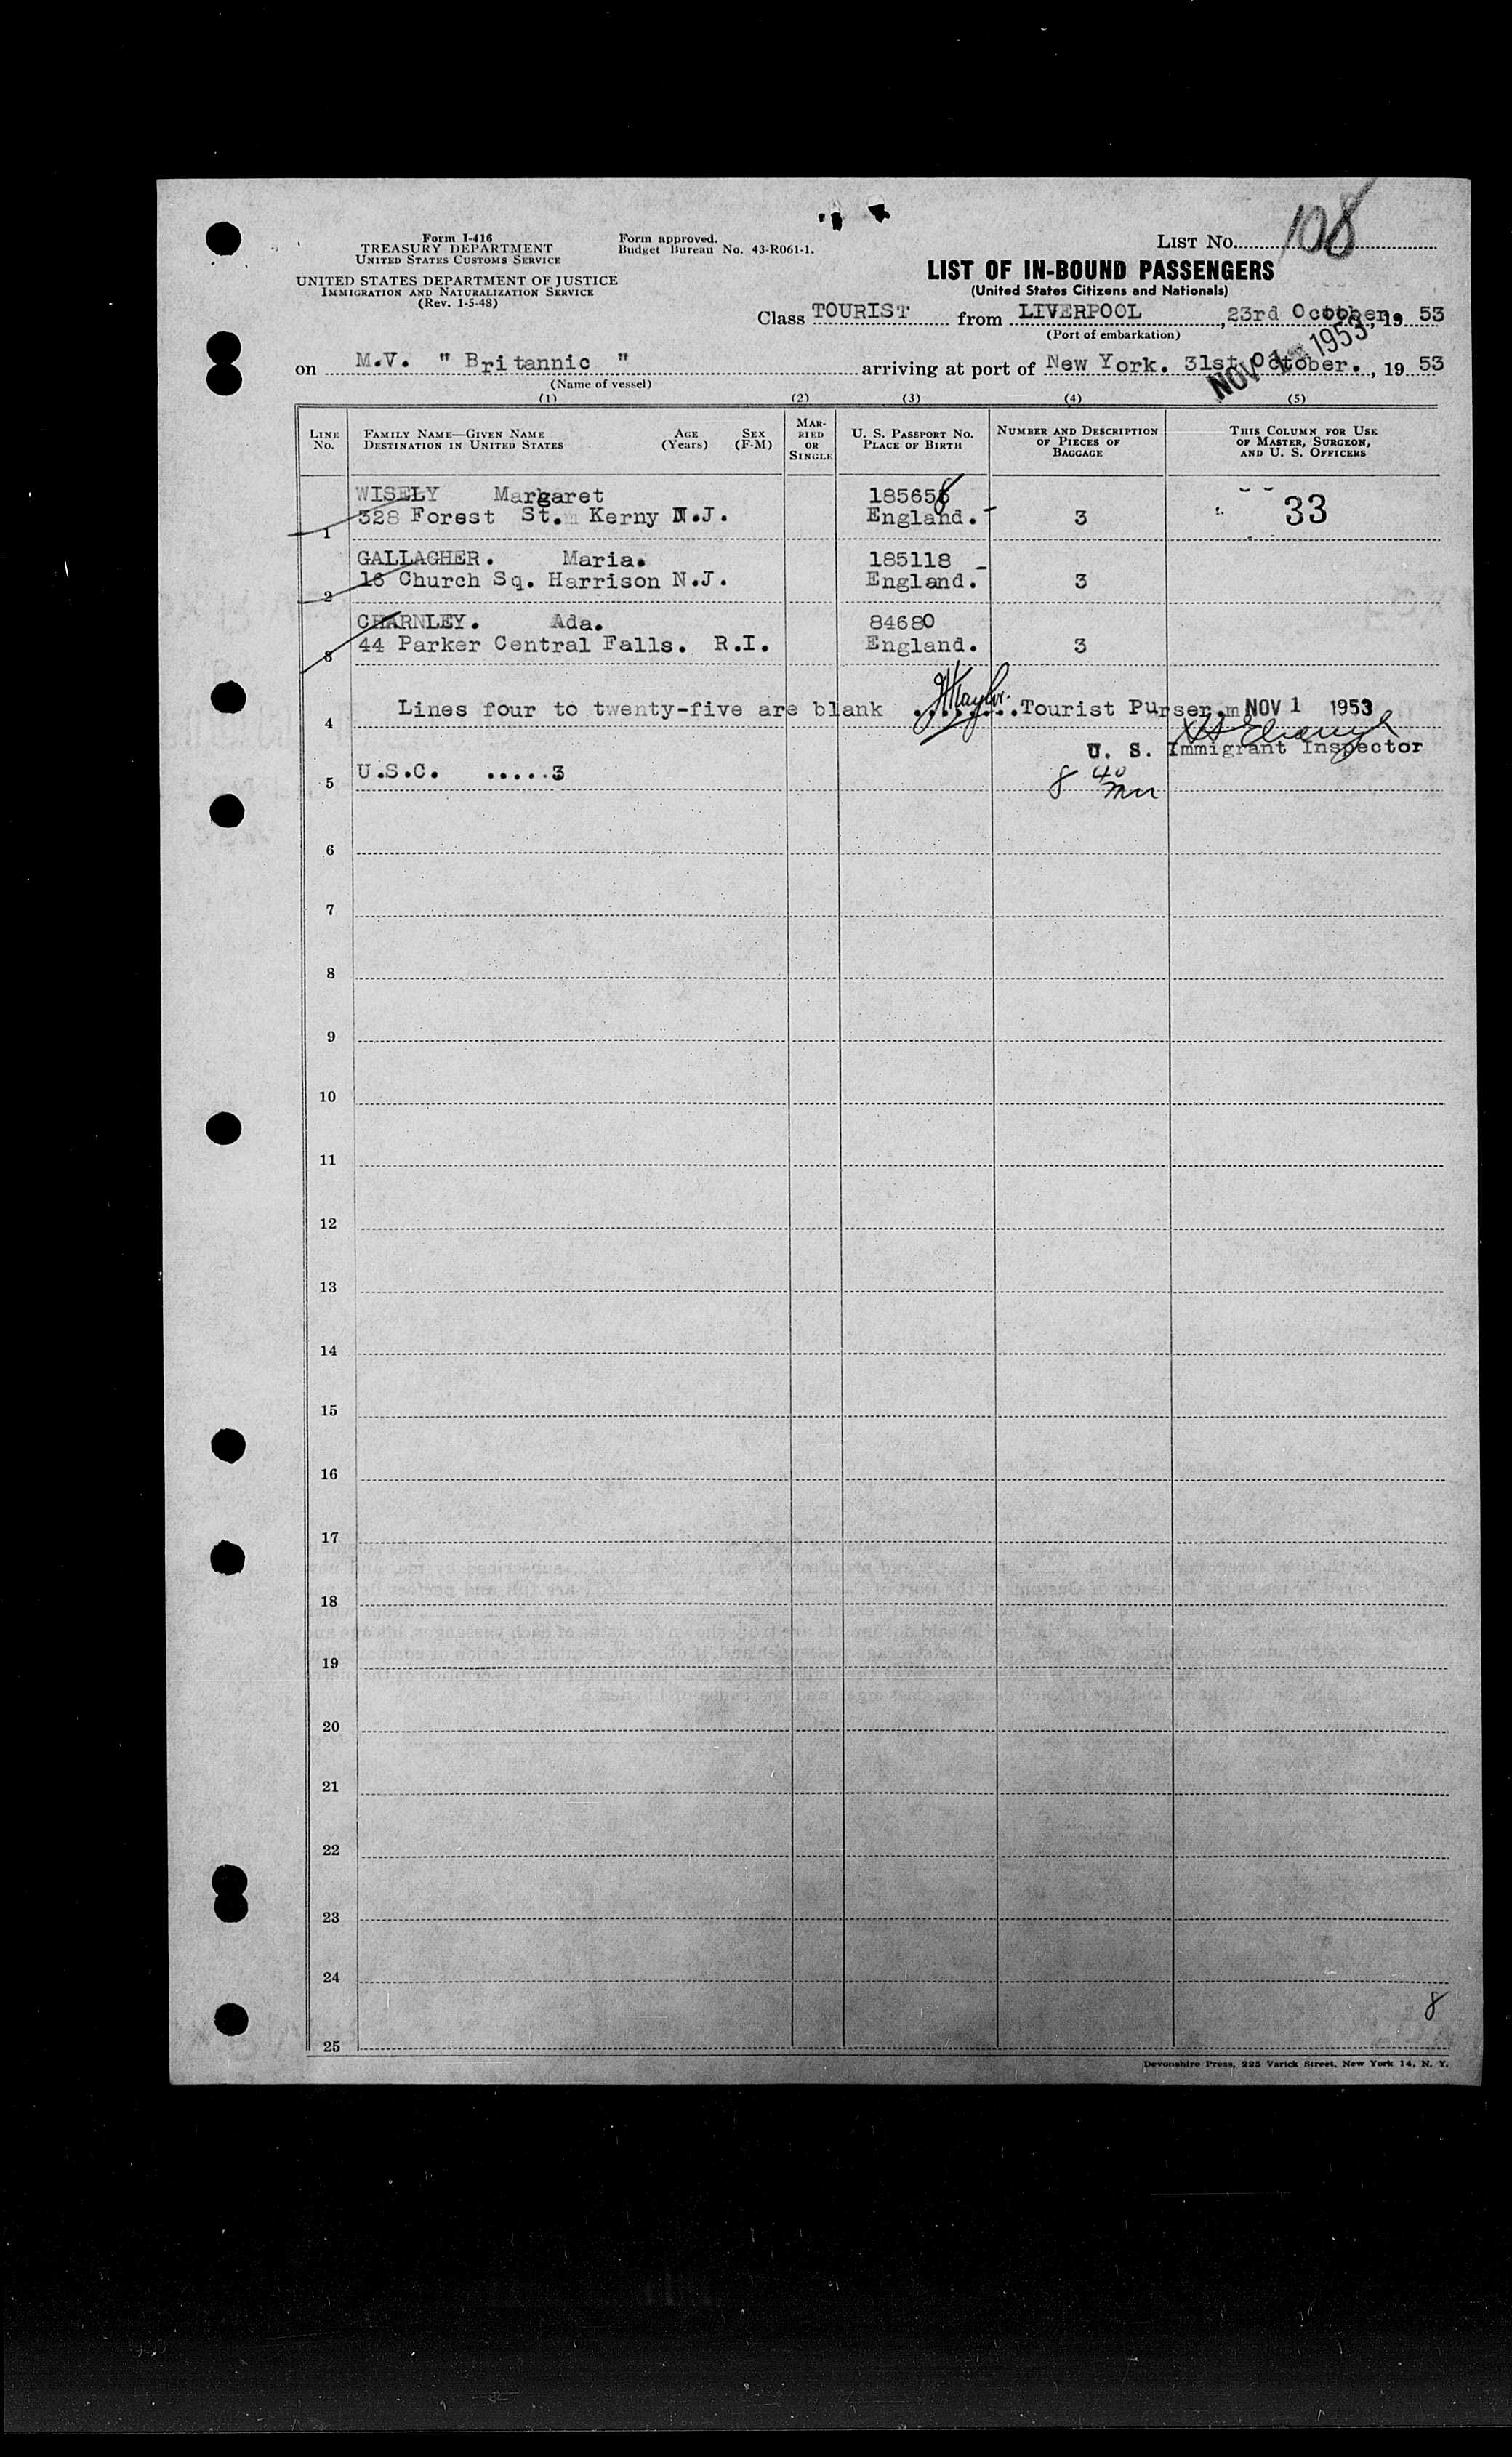 Form I-416
TREASURY DEPARTMENT
UNITED STATES CUSTOMS SERVICE
UNITED STATES DEPARTMENT OF JUSTICE
IMMIGRATION AND NATURALIZATION SERVICE
(Rev. 1-5-48)
Form approved.
Budget Bureau No. 43-R061-1.
LIST NO. 108
LIST OF IN-BOUND PASSENGERS
(United States Citizens and Nationals)
Class TOURIST from LIVERPOOL, 23rd October, 19 53
(Port of embarkation)
NOV 1 - 1953
on M.V. " Britannic " arriving at port of New York. 31st October. , 19 53
(Name of vessel)
(1) (2) (3) (4) (5)
LINE NO. FAMILY NAME—GIVEN NAME DESTINATION IN UNITED STATES AGE (Years) SEX (F-M) MARRIED OR SINGLE U. S. PASSPORT NO. PLACE OF BIRTH NUMBER AND DESCRIPTION OF PIECES OF BAGGAGE THIS COLUMN FOR USE OF MASTER, SURGEON, AND U. S. OFFICERS
WISELY Margaret 185658
1 328 Forest St. Kerny N.J. England. 3 33
GALLAGHER. Maria. 185118
2 16 Church Sq. Harrison N.J. England. 3
CHARNLEY. Ada. 84680
3 44 Parker Central Falls. R.I. England. 3
4 Lines four to twenty-five are blank ........Tourist Purser. NOV 1 1953
U. S. Immigrant Inspector
5 U.S.C. .....3 8 40
6
7
8
9
10
11
12
13
14
15
16
17
18
19
20
21
22
23
24
8
25
Devonshire Press, 225 Varick Street, New York 14, N. Y.